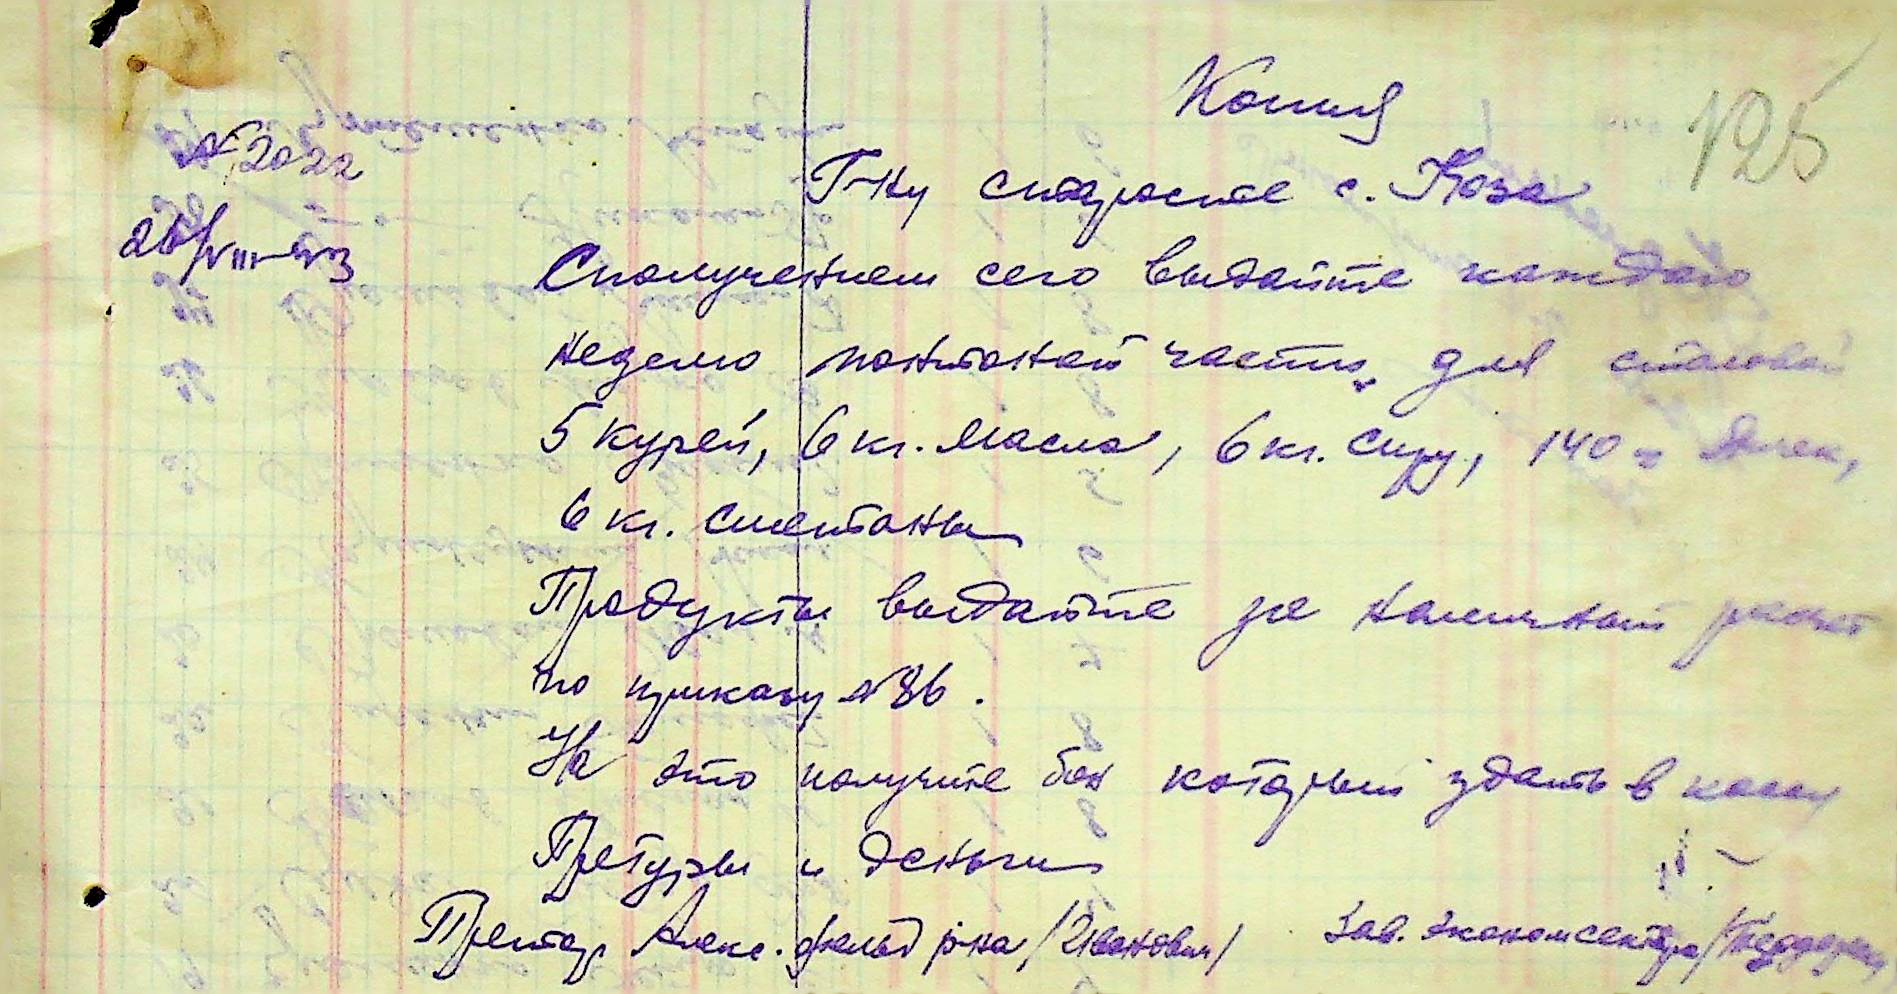 Копия
125
№ 2022
Г-ну старосте с. Коза
26/VIII-43
Сполучением сего выдайте каждую
неделю понтонной части для столовой
5 курей, 6 кг. Масла, 6 кг. Сиру, 140 яиек,
6 кг. сметаны
Продукты выдайте за наличный расчет
по приказу № 86.
На это получите бон который здать в кассу
Претуры и деньги
Претор Алекс.фельд р-на /Иванович/ Зав. экономсектора